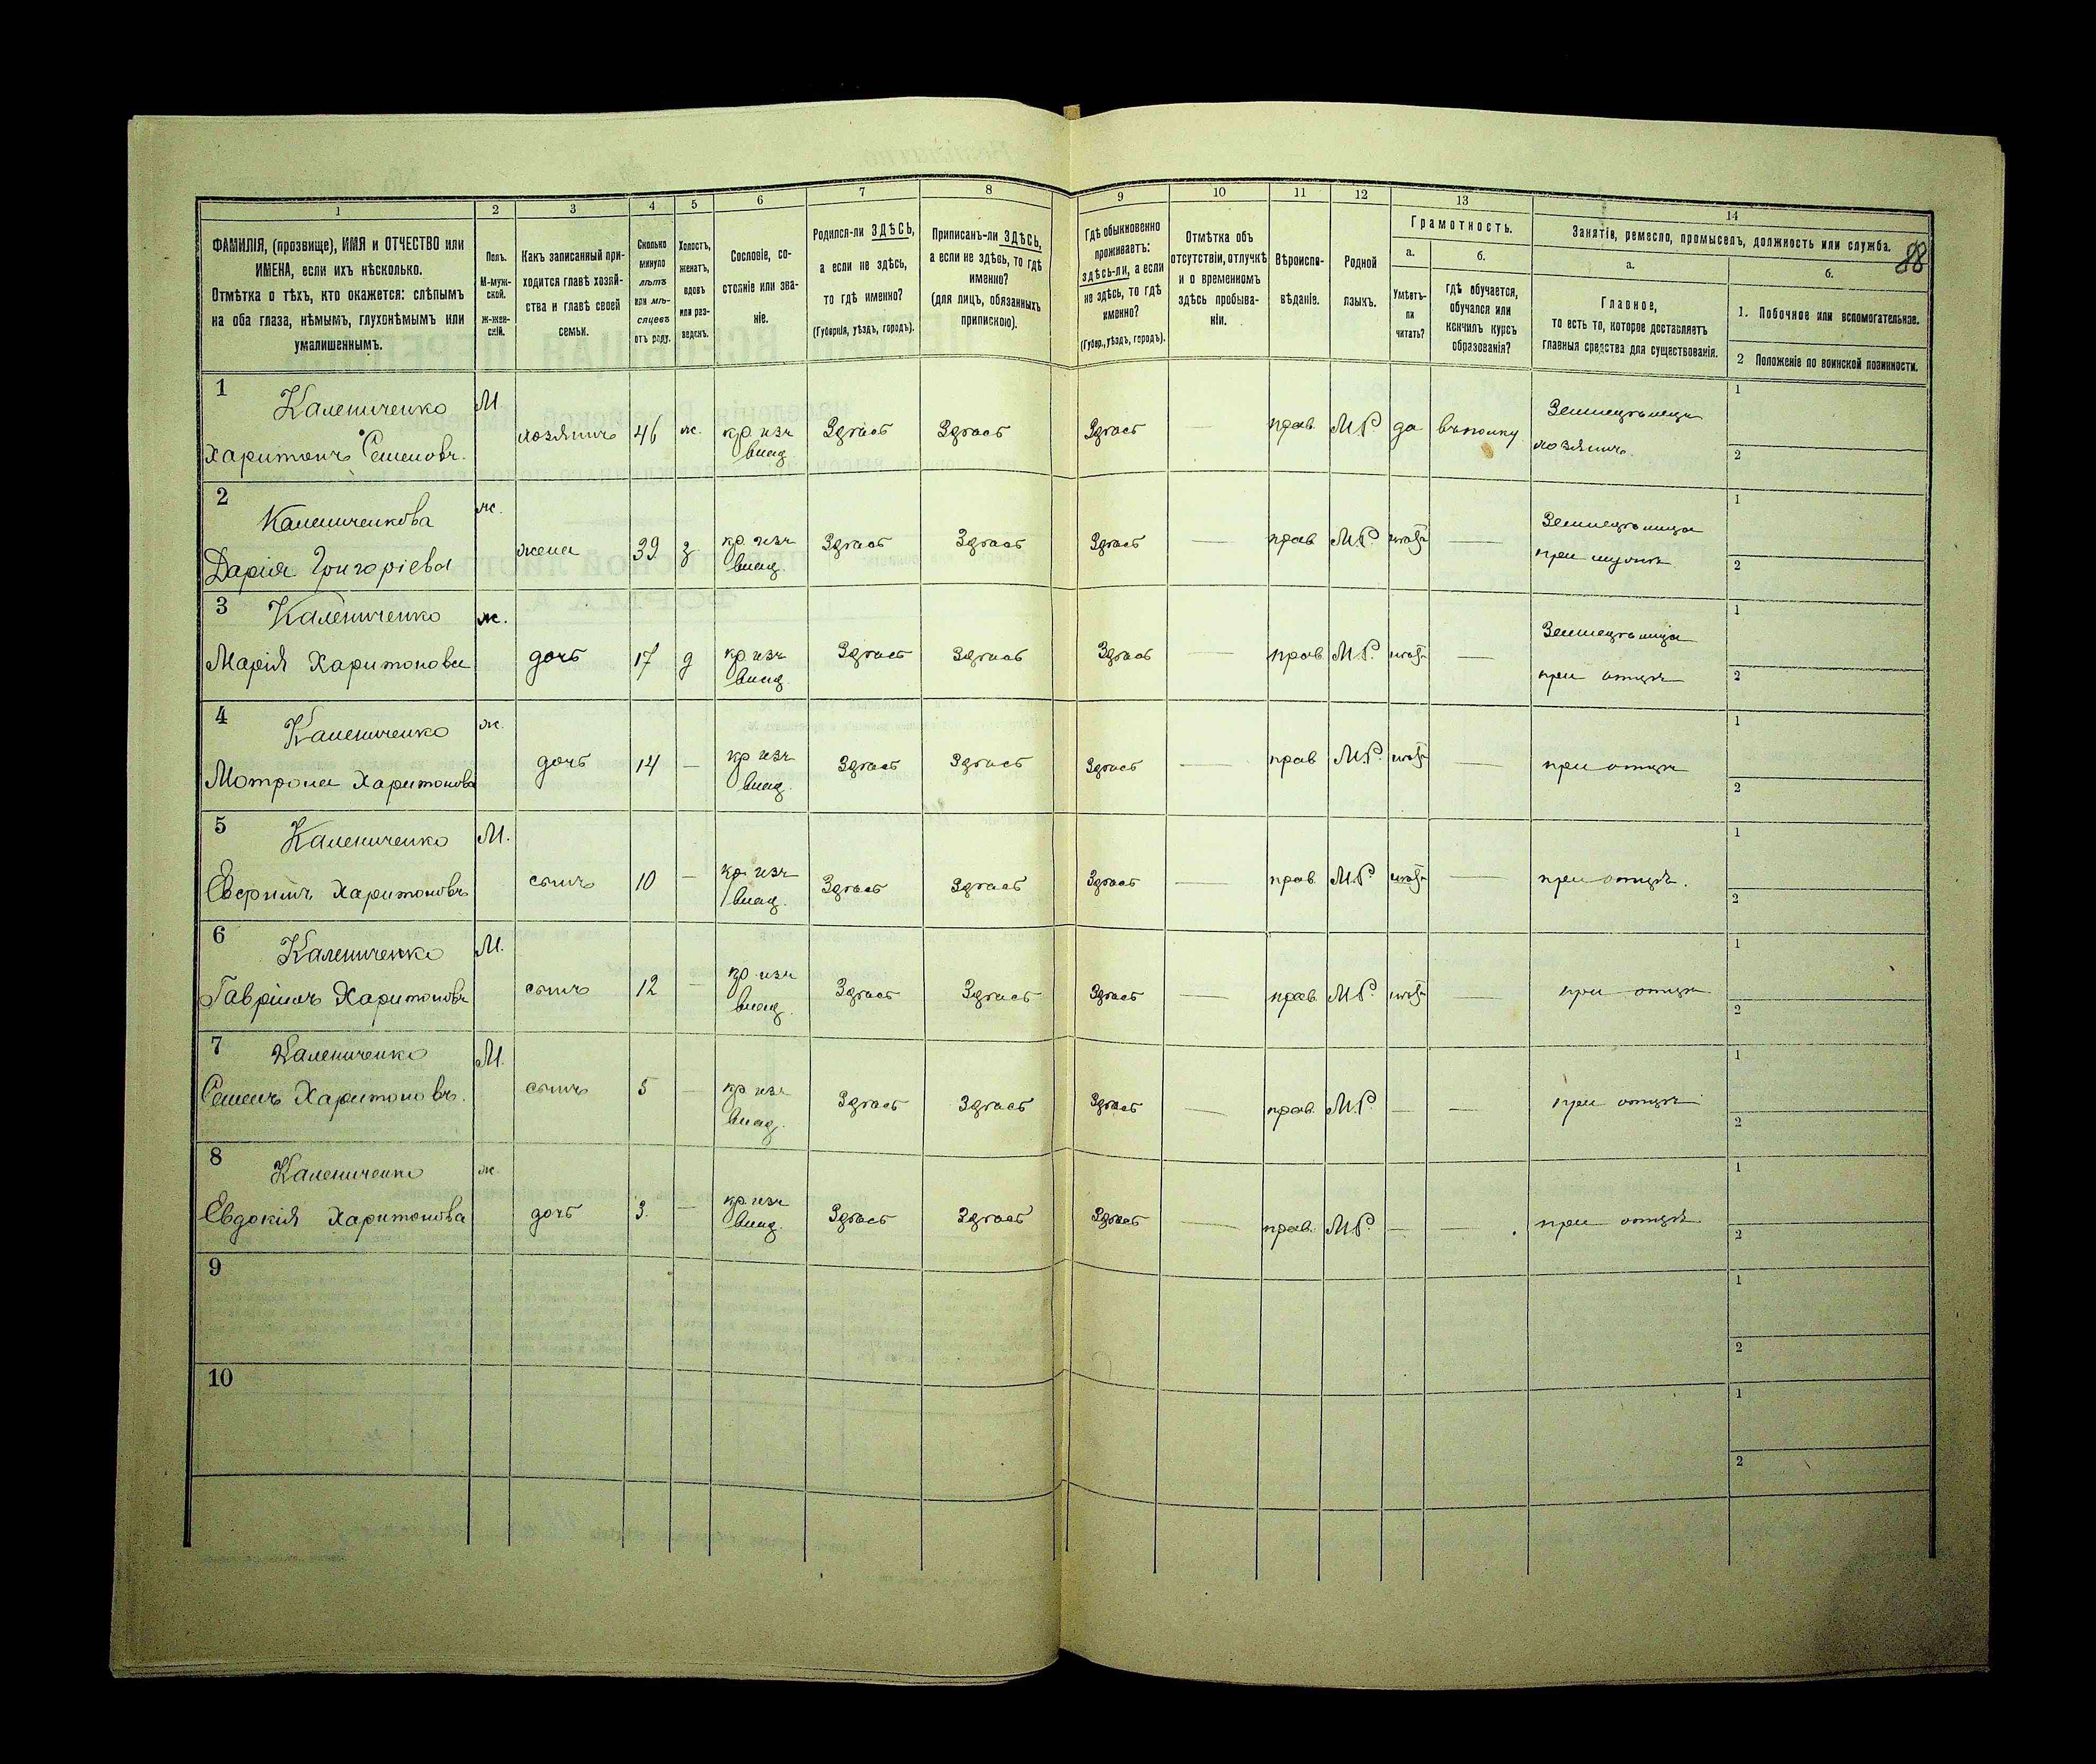 88
1 2 3 4 5 6 7 8 9 10 11 12 13 14
ФАМИЛІЯ, (прозвище), ИМЯ и ОТЧЕСТВО или
ИМЕНА, если ихъ нѣсколько.
Отмѣтка о тѣхъ, кто окажется: слѣпымъ
на оба глаза, нѣмымъ, глухонѣмымъ или
умалишеннымъ.
Полъ.
М-муж-
ской.
ж-жен-
скій.
Какъ записанный при-
ходится главѣ хозяй-
ства и главѣ своей
семьи.
Сколько
минуло
лѣтъ
или мѣ-
сяцевъ
отъ роду.
Холостъ,
женатъ,
вдовъ
или раз-
веденъ.
Сословіе, со-
стояніе или зва-
ніе.
Родился-ли ЗДѢСЬ,
а если не здѣсь,
то гдѣ именно?
(Губернія, уѣздъ, городъ).
Приписанъ-ли ЗДѢСЬ,
а если не здѣсь, то гдѣ
именно?
(для лицъ, обязанныхъ
припискою).
Гдѣ обыкновенно
проживаетъ:
здѣсь-ли, а если
не здѣсь, то гдѣ
именно?
(Губер., уѣздъ, городъ).
Отмѣтка объ
отсутствіи, отлучкѣ
и о временномъ
здѣсь пребыва-
ніи.
Вѣроиспо-
вѣданіе.
Родной
языкъ.
Грамотность.
а.
Умѣетъ-
ли
читать?
б.
гдѣ обучается,
обучался или
кончилъ курсъ
образованія?
Занятіе, ремесло, промыселъ, должность или служба.
а.
Главное,
то есть то, которое доставляетъ
главныя средства для существованія.
б.
1. Побочное или вспомогательное.
2 Положеніе по воинской повинности.
1 Калениченко М 1
Харитонъ Семеновъ. хозяинъ 46 ж. кр. изъ Здѣсь Здѣсь Здѣсь — прав. М.Р. да въ полку Земледѣлецъ
влад хозяинъ. 2
2 Калениченкова ж. 1
Дарія Григоріева жена 39 з кр. изъ Здѣсь Здѣсь Здѣсь — прав М.Р. — Земледѣлица
влад. при мужѣ 2
3 Калениченко ж. 1
Марія Харитонова дочь 17 д кр. изъ Здѣсь Здѣсь Здѣсь — прав. М.Р. — Земледѣлица
влад. при отцѣ 2
4 Калениченко ж. 1
Мотрона Харитонова дочь 14 — кр изъ Здѣсь Здѣсь Здѣсь — прав М.Р. — при отцѣ
влад. 2
5 Калениченко М. 1
Харитоновъ сынъ 10 — кр. изъ Здѣсь Здѣсь Здѣсь — прав. М.Р. — при отцѣ.
влад. 2
6 Калениченко М. 1
Гавріилъ Харитоновъ сынъ 12 — кр. изъ Здѣсь Здѣсь Здѣсь — прав. М.Р. — при отцѣ
влад. 2
7 Калениченко М. 1
Семенъ Харитоновъ. сынъ 5 — кр изъ Здѣсь Здѣсь Здѣсь — прав. М.Р. — — при отцѣ
влад. 2
8 Калениченко ж. 1
Евдокія Харитонова дочь 3. — кр. изъ Здѣсь Здѣсь Здѣсь — прав. М.Р. — — при отцѣ
влад. 2
9 1
2
10 1
2